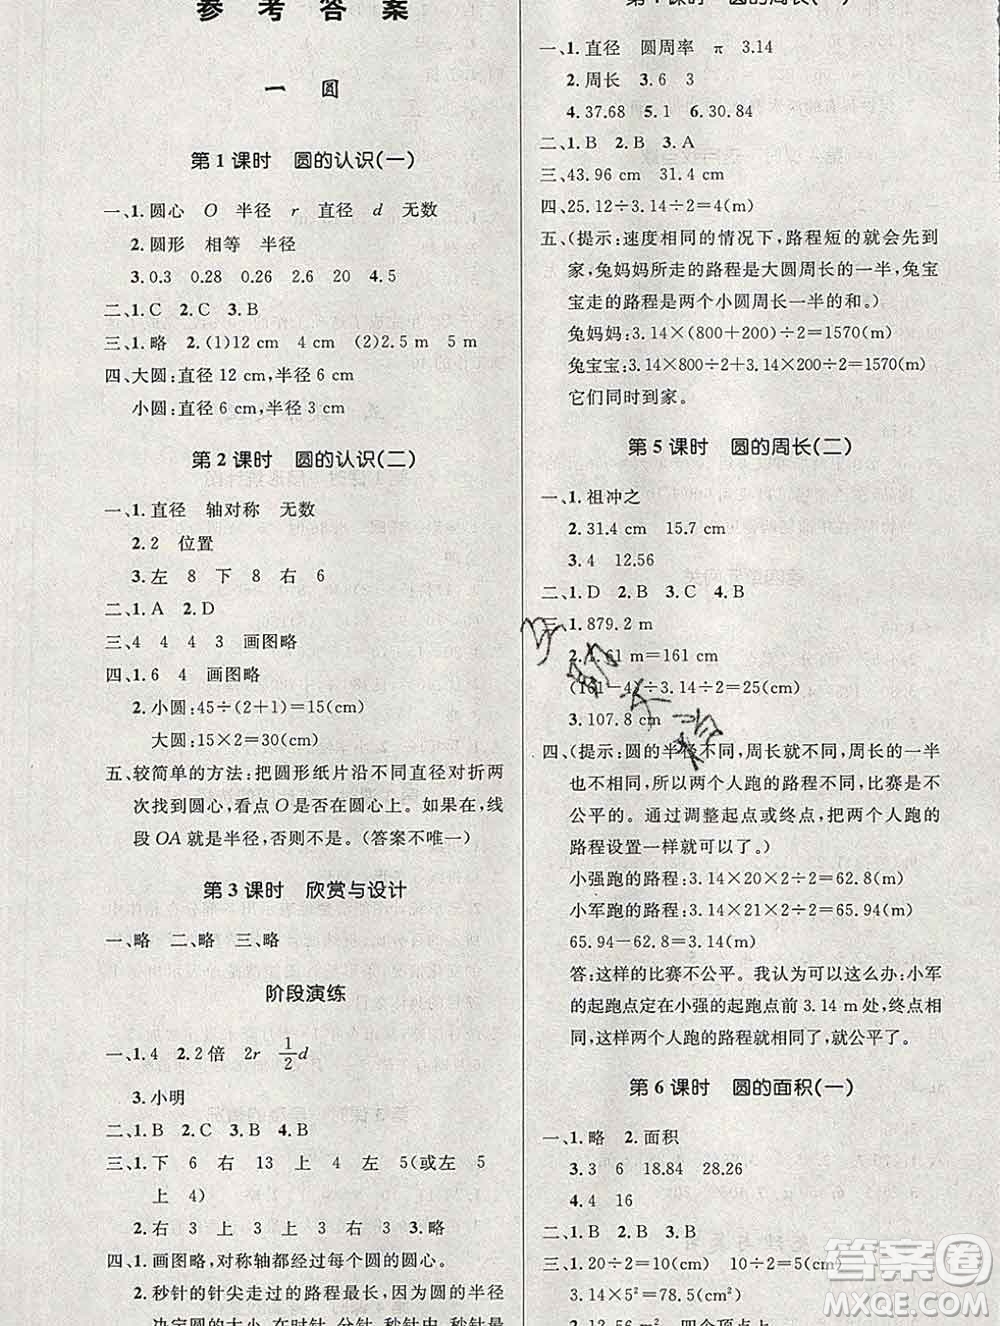 参考答案
一 圆
第1课时 圆的认识(一)
一、1.圆心 O 半径 r 直径 d 无数
2.圆形 相等 半径
3.0.3 0.28 0.26 2.6 20 4.5
二、1.C 2.C 3.B
三、1.略 2.(1)12 cm 4 cm (2)2.5 m 5 m
四、大圆:直径12 cm,半径6 cm
小圆:直径6 cm,半径3 cm
第2课时 圆的认识(二)
一、1.直径 轴对称 无数
2.2 位置
3.左 8 下 8 右 6
二、1.A 2.D
三、4 4 4 3 画图略
四、1.6 4 画图略
2.小圆:45÷(2+1)=15(cm)
大圆:15×2=30(cm)
五、较简单的方法:把圆形纸片沿不同直径对折两
次找到圆心,看点O是否在圆心上。如果在,线
段OA就是半径,否则不是。(答案不唯一)
第3课时 欣赏与设计
一、略 二、略 三、略
阶段演练
一、1.4 2.2倍 2r 1/2d
3.小明
二、1.B 2.C 3.B 4.B
三、1.下 6 右 13 上 4 左 5(或左 5
上 4)
2.右 3 上 3 上 3 右 3 3.略
四、1.画图略,对称轴都经过每个圆的圆心。
2.秒针的针尖走过的路程最长,因为圆的半径
决定圆的大小,在时针、分针、秒针中,秒针
第4课时 圆的周长(一)
一、1.直径 圆周率 π 3.14
2.周长 3.6 3
4.37.68 5.1 6.30.84
二、1.B 2.B 3.A
三、43.96 cm 31.4 cm
四、25.12÷3.14÷2=4(m)
五、(提示:速度相同的情况下,路程短的就会先到
家,兔妈妈所走的路程是大圆周长的一半,兔宝
宝走的路程是两个小圆周长一半的和。)
兔妈妈:3.14×(800+200)÷2=1570(m)
兔宝宝:3.14×800÷2+3.14×200÷2=1570(m)
它们同时到家。
第5课时 圆的周长(二)
一、1.祖冲之
2.31.4 cm 15.7 cm
3.4 12.56
二、1.D 2.B 3.C 4.B
三、1.879.2 m
2.1.61 m=161 cm
(161-4)÷3.14÷2=25(cm)
3.107.8 cm
四、(提示:圆的半径不同,周长就不同,周长的一半
也不相同,所以两个人跑的路程不同,比赛是不
公平的。通过调整起点或终点,把两个人跑的
路程设置一样就可以了。)
小强跑的路程:3.14×20×2÷2=62.8(m)
小军跑的路程:3.14×21×2÷2=65.94(m)
65.94-62.8=3.14(m)
答:这样的比赛不公平。我认为可以这么办:小军
的起跑点定在小强的起跑点前3.14 m处,终点相
同,这样两个人跑的路程就相同了,就公平了。
第6课时 圆的面积(一)
一、1.略 2.面积
3.3 6 18.84 28.26
4.4 16
二、1.B 2.B 3.C 4.C
三、1.10÷2=5(cm)
3.14×5²=78.5(cm²)
答案圈
MXQE.COM